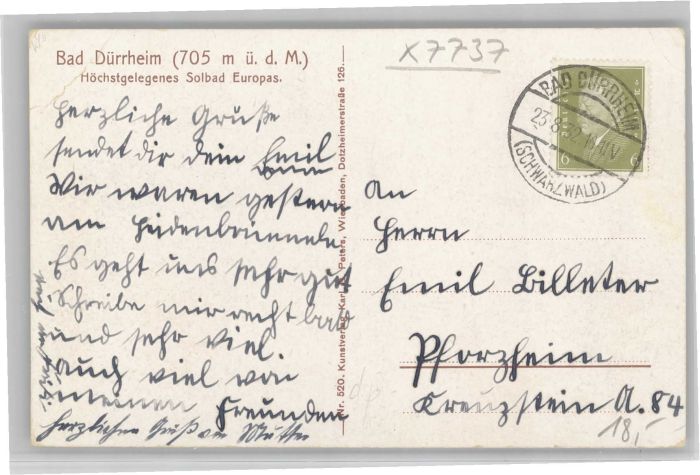 Bad Dürrheim (705 m ü. d. M.)
Höchstgelegenes Solbad Europas.
Herzliche Grüße
sendet dir dein Emil
Wir waren gestern
am Heidenbrünnele
Es geht uns sehr gut
Schreibe mir recht bald
und sehr viel.
auch viel von
meinen Freunden
herzlichen Gruß an Mutter
Nr. 520. Kunstverlag Karl Peters, Wiesbaden, Dotzheimerstraße 126.
X7737
BAD DÜRRHEIM
23.8.32
(SCHWARZWALD)
6 6
An
Herrn
Emil Billeter
Pforzheim
Kreuzstein A. 84
18,-